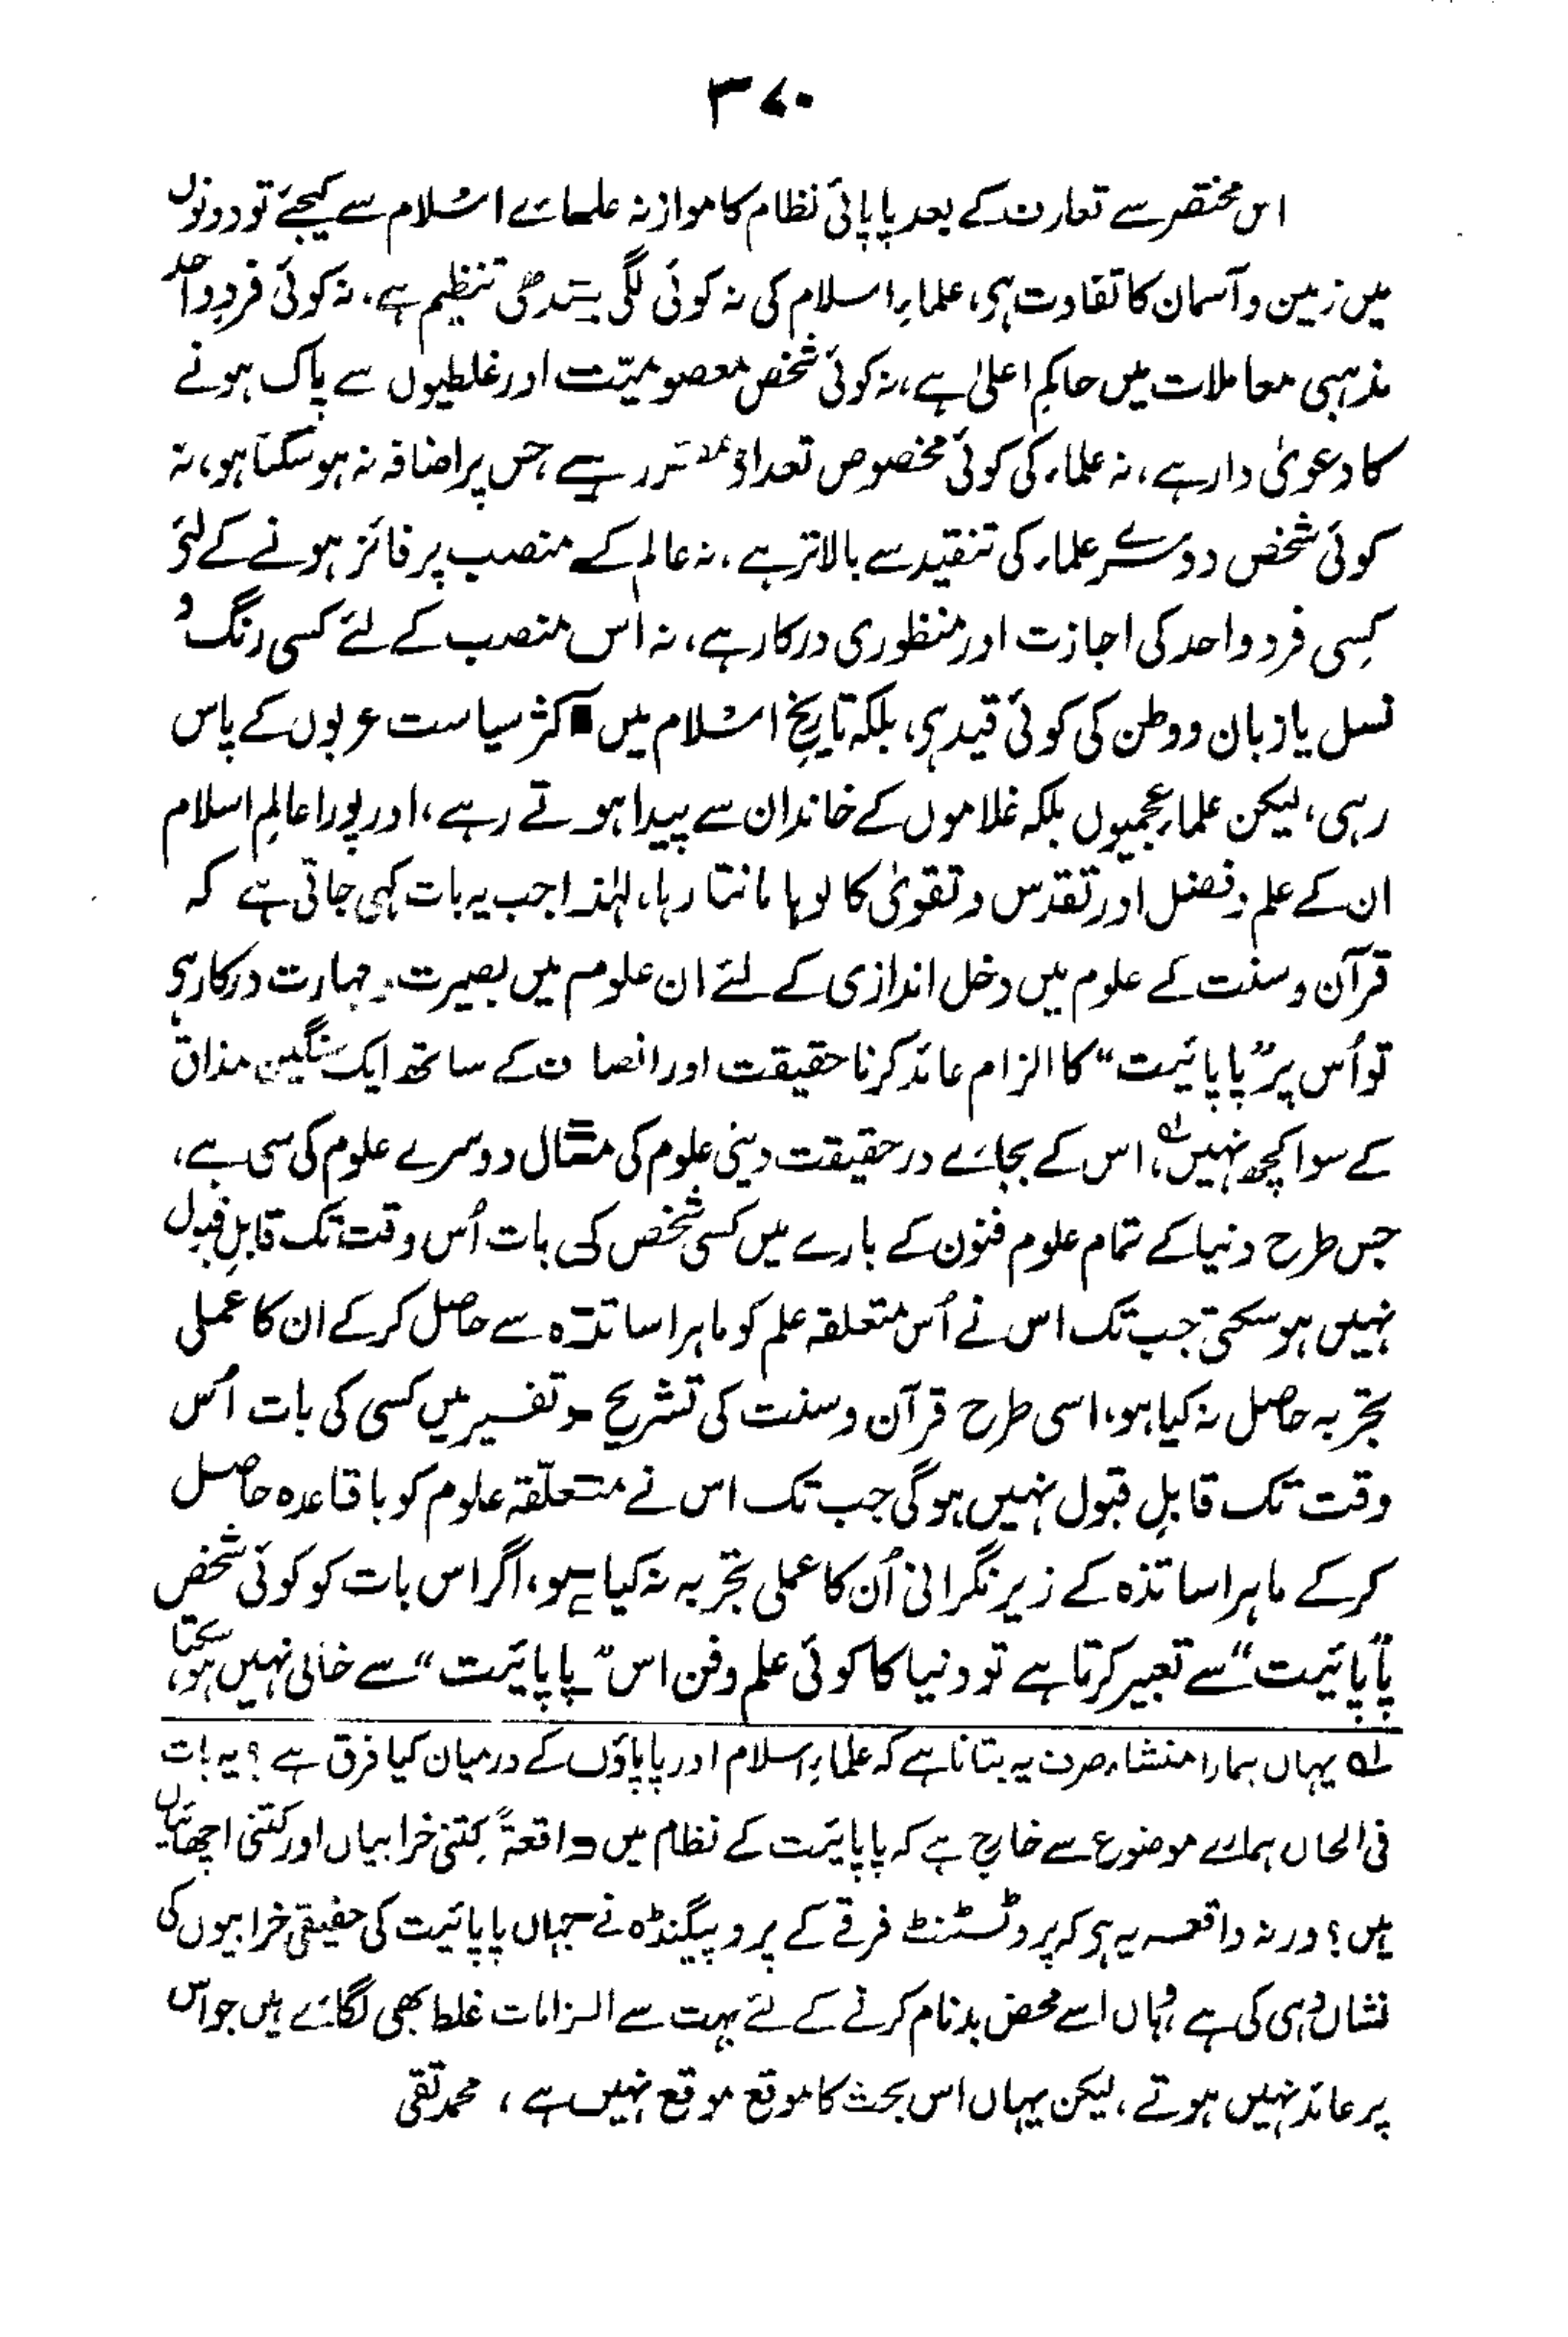 ۳۷۰
اس مختصر سے تعارف کے بعد پاپائی نظام کا موازنہ علمائے اسلام سے کیجئے تو دونوں
میں زمین و آسمان کا تفاوت ہی، علماءِ اسلام کی نہ کوئی لگی بندھی تنظیم ہے، نہ کوئی فردِ واحد
مذہبی معاملات میں حاکمِ اعلیٰ ہے، نہ کوئی شخص معصومیّت اور غلطیوں سے پاک ہونے
کا دعویٰ دار ہے، نہ علماء کی کوئی مخصوص تعداد مقرر ہے جس پر اضافہ نہ ہو سکتا ہو، نہ
کوئی شخص دوسرے علماء کی تنقید سے بالاتر ہے، نہ عالم کے منصب پر فائز ہونے کے لئے
کِسی فرد واحد کی اجازت اور منظوری درکار ہے، نہ اس منصب کے لئے کسی رنگ و
نسل یا زبان و وطن کی کوئی قید ہی، بلکہ تاریخِ اسلام میں اکثر سیاست عربوں کے پاس
رہی، لیکن علماء عجمیوں بلکہ غلاموں کے خاندان سے پیدا ہوتے رہے، اور پورا عالمِ اسلام
ان کے علم و فضل اور تقدس و تقویٰ کا لوہا مانتا رہا، لہٰذا جب یہ بات کہی جاتی ہے کہ
قرآن و سنت کے علوم میں دخل اندازی کے لئے ان علوم میں بصیرت و مہارت درکار ہی
تو اُس پر ”پاپائیت“ کا الزام عائد کرنا حقیقت اور انصاف کے ساتھ ایک سنگین مذاق
کے سوا کچھ نہیں؎۱، اس کے بجائے درحقیقت دینی علوم کی مثال دوسرے علوم کی سی ہے،
جس طرح دنیا کے تمام علوم فنون کے بارے میں کسی شخص کی بات اُس وقت تک قابلِ قبول
نہیں ہو سکتی جب تک اس نے اُس متعلقہ علم کو ماہر اساتذہ سے حاصل کر کے ان کا عملی
تجربہ حاصل نہ کیا ہو، اسی طرح قرآن و سنت کی تشریح و تفسیر میں کسی کی بات اُس
وقت تک قابلِ قبول نہیں ہوگی جب تک اس نے متعلّقہ علوم کو باقاعدہ حاصل
کر کے ماہر اساتذہ کے زیرِ نگرانی اُن کا عملی تجربہ نہ کیا ہو، اگر اس بات کو کوئی شخص
”پاپائیت“ سے تعبیر کرتا ہے تو دنیا کا کوئی علم و فن اس ”پاپائیت“ سے خالی نہیں ہو سکتا،
؎۱ یہاں ہمارا منشاء صرف یہ بتانا ہے کہ علماءِ اسلام اور پاپاؤں کے درمیان کیا فرق ہے؟ یہ بات
فی الحال ہمارے موضوع سے خارج ہے کہ پاپائیت کے نظام میں واقعۃً کِتنی خرابیاں اور کتنی اچھائیاں
ہیں؟ ورنہ واقعہ یہ ہی کہ پروٹسٹنٹ فرقے کے پروپیگنڈہ نے جہاں پاپائیت کی حقیقی خرابیوں کی
نشان دہی کی ہے وہاں اسے محض بدنام کرنے کے لئے بہت سے الزامات غلط بھی لگائے ہیں جو اس
پر عائد نہیں ہوتے، لیکن یہاں اس بحث کا موقع موقع نہیں ہے، محمد تقی